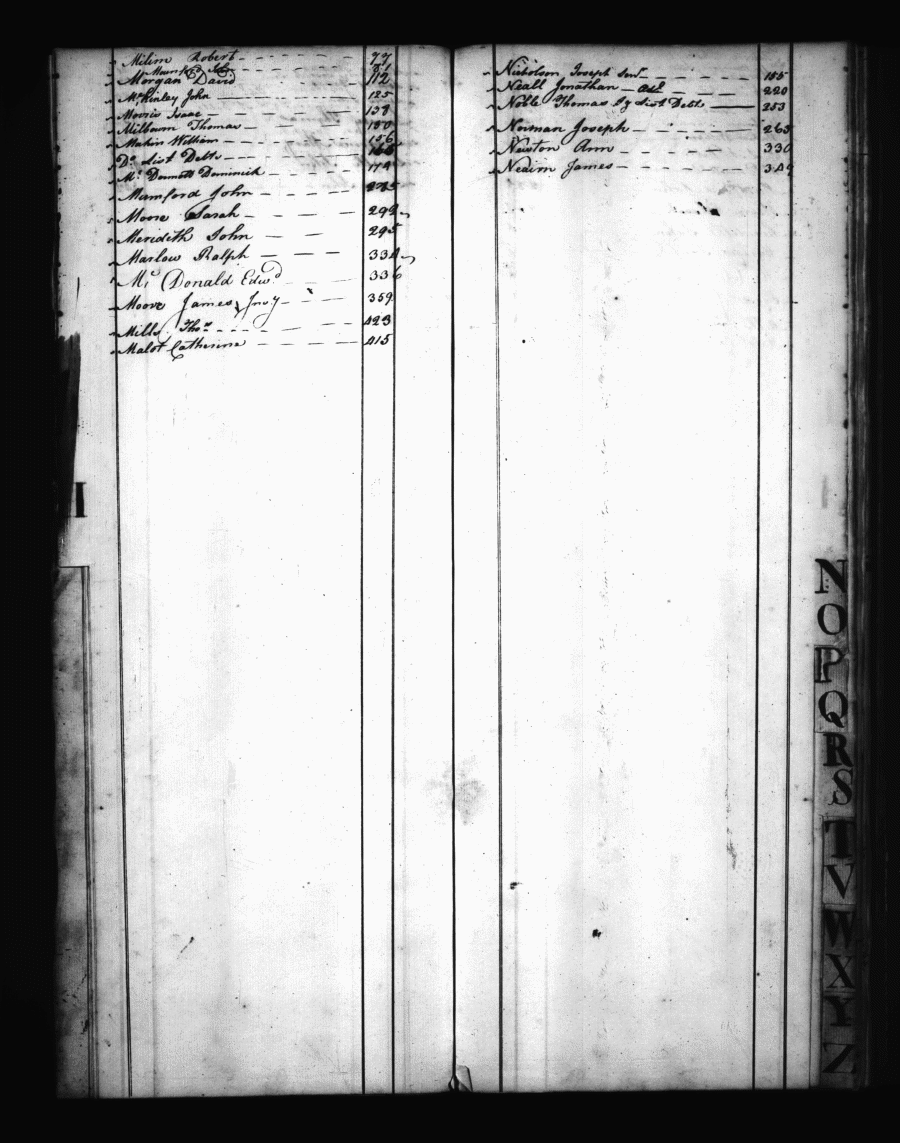 Milim Robert 77
Mumford John 81
Morgan David 112
McKinley John 125
Morris Isaac 138
Milbourn Thomas 150
Mahin William 156
Do. dist Debts
Mc Dermott Dominick 174
Mumford John
Moore Sarah 292
Meridith John 295
Marlow Ralph 334
Mc Donald Edwd 336
Moore James Invy 359
Mills Thos 423
Malot Catherine 415
I
Nicholson Joseph Senr 155
Neall Jonathan Adl 220
Noble Thomas by dist Debt 253
Norman Joseph 263
Newton Ann 330
Neairn James 349
N
O
P
Q
R
S
T
V
W
X
Y
Z